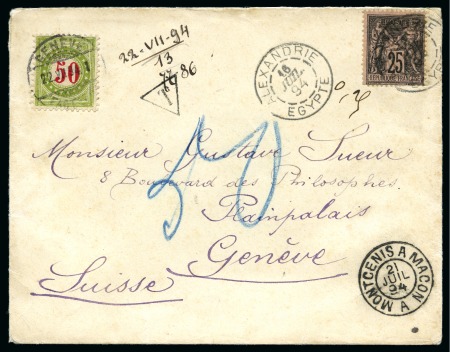 GENÈVE
50
22-VII-94
13
T
986
ALEXANDRIE
16
JUIL
94
EGYPTE
25
0,25
Monsieur Gustave Sueur
8 Boulevard des Philosophes.
Plainpalais
Genève
Suisse
50
MONTCENIS A MACON A
21
JUIL
94